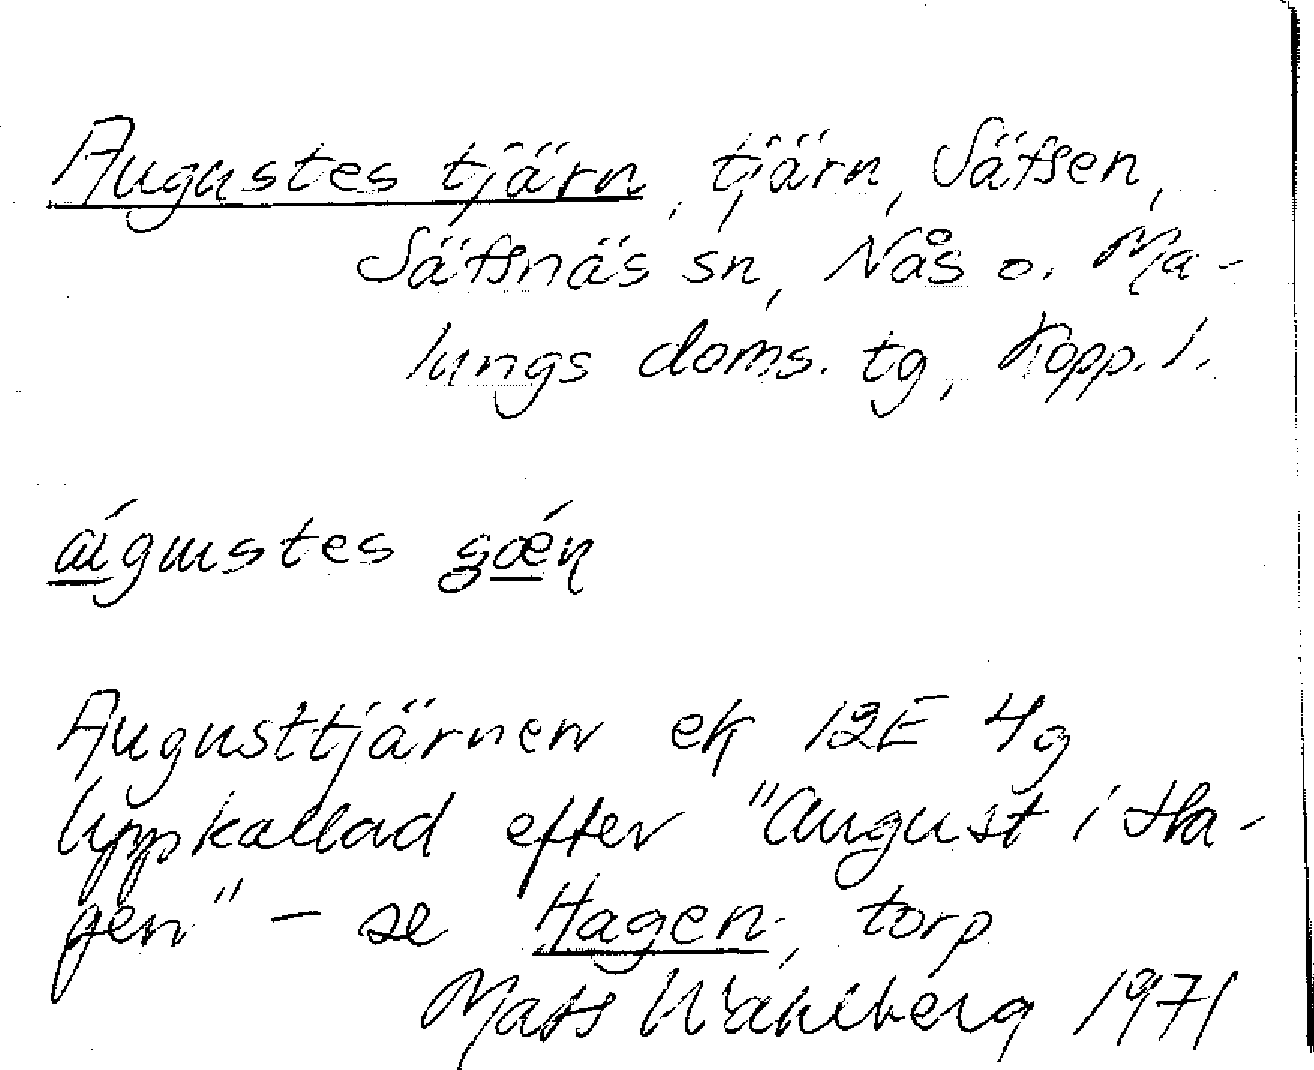 Augustes tjärn, tjärn, Säfsen,
Säfsnäs sn, Nås o. Ma-
lungs doms. tg, Kopp. l.
Augusttjärnen ek 12E 4g
Uppkallad efter "August i Ha-
gen" - se Hagen, torp
Mats Wahlberg 1971